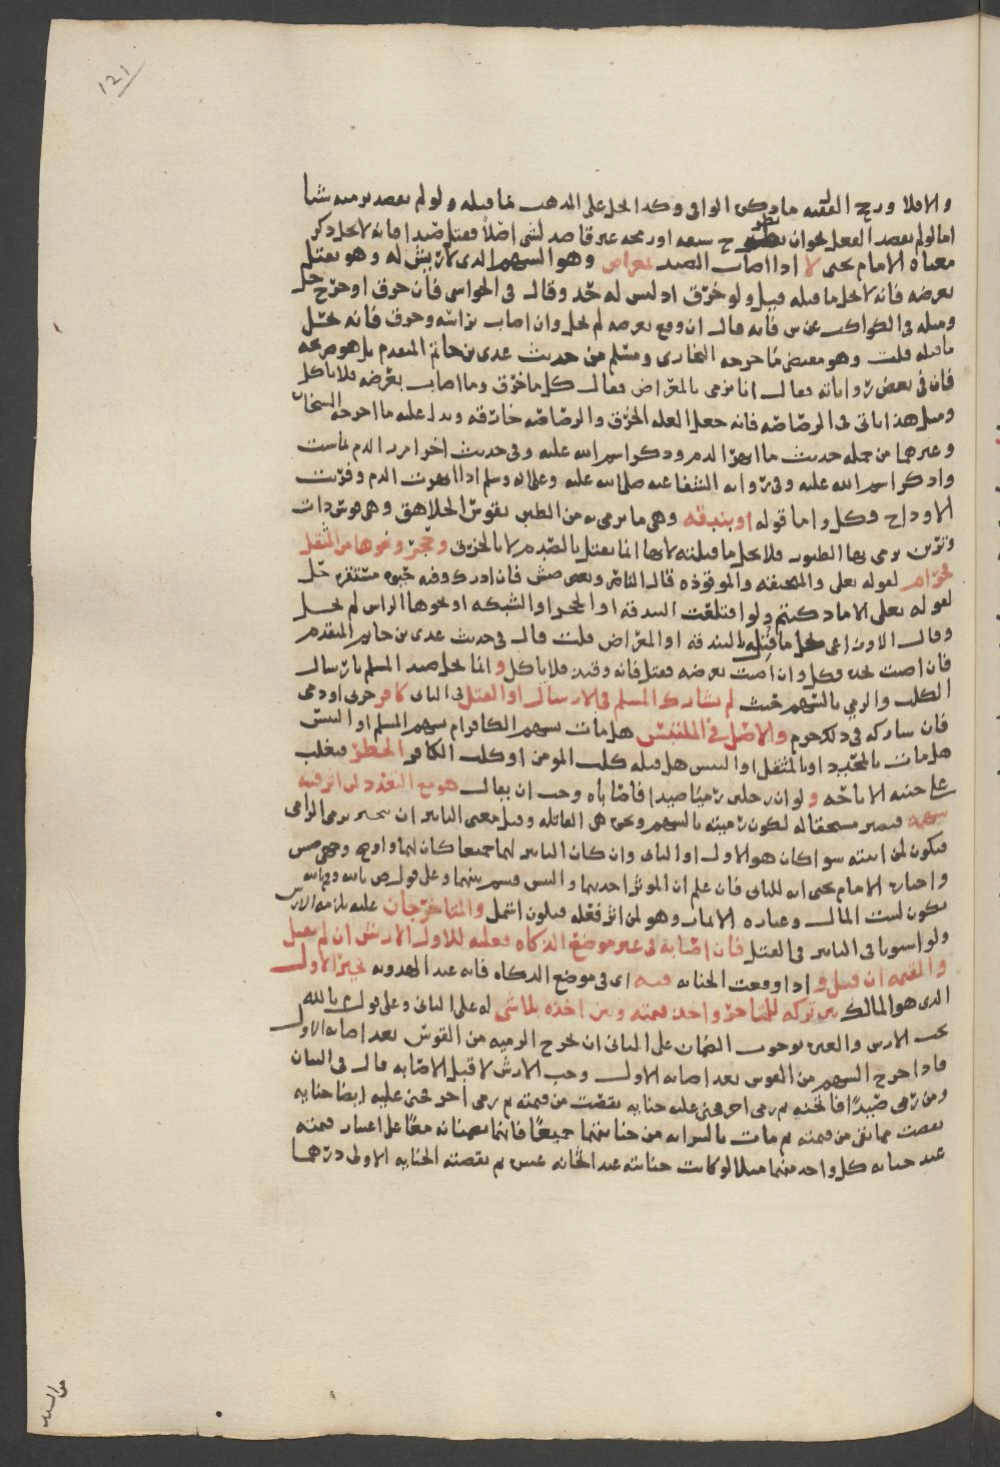 ١٢١
والا فلا ورجح الفقيه ما ذكره الوافي وكذا يحل على المذهب ما قتله ولو لم يقصد برميه شيا
اما لو لم يقصد الفعل نحو ان سيفه او رمحه غير قاصد لشي اصلا فقتل صيدا فانه لا يحل ذكر
معناه الامام يحيى لا اذا اصاب الصيد بمعراض وهو السهم الذي لا ريش له وهو يقتل
بعرضه فانه لا يحل ما قتله قيل ولو خرق اذ ليس له حد وقال في الحواشي فان خرق او جرح حل
ومثله في الكواكب فانه قال ان وقع بعرضه لم يحل وان اصاب براسه وخرق فانه يحل
ما قتله قلت وهو مقتضى ما اخرجه البخاري ومسلم من حديث عدي بن حاتم المتقدم بل هو صريحه
فان في بعض رواياته فقال انا نرمي بالمعراض فقال كل ما خزق وما اصاب بعرضه فلا تاكل
ومثل هذا ياتي في الرصاصة فانه جعل العلة الخزق والرصاصة خارقه ويدل عليه ما اخرجه الشيخان
وغيرهما من جملة حديث ما انهر الدم وذكر اسم الله عليه وفي حديث اخر امرر الدم بما شيت
واذكر اسم الله عليه وفي رواية الشفا عنه صلى الله عليه وعلى اله وسلم اذا انهرت الدم وفريت
الاوداج فكل واما قوله او بندقه وهي ما يرمى به من الطين بقوس الجلاهق وهي قوس ذات
وترين يرمى بها الطيور فلا يحل ما قتلته لانها انما تقتل بالصدم لا بالخزق وحجر ونحوها من المثقل
فحرام لقوله تعالى والمنخنقة والموقوذة قال الناصر وبعض صش فان ادرك وفيه حيوة مستقرة حل
لقوله تعالى الا ما ذكيتم ولو اقتلعت البندقة او الحجر او الشبكة او نحوها الراس لم يحل
وقال الاوزاعي يحل ما قتل بالبندقة او المعراض قلت قال في حديث عدي بن حاتم المتقدم
فان اصبت بحده فكل وان اصبت بعرضه فقتل فانه وقيذ فلا تاكل وانما يحل صيد المسلم بارسال
الكلب والرمي بالسهم حيث لم يشارك المسلم في الارسال او القتل في الثاني كافر حربي او ذمي
فان شاركه في ذلك حرم والاصل في الملتبس هل مات بسهم الكافر ام بسهم المسلم او التبس
هل مات بالمحدد او بالمثقل او التبس هل قتله كلب المومن او كلب الكافر الحظر فيغلب
على جنبة الاباحة ولو ان رجلين رميا صيدا فاصاباه وجب ان يقال هو مع التعدد لمن اثر فيه
سهمه فيصير مستحقا له لكون رميته بالسهم
فيكون لمن اثبته سوا كان هو الاول او الثاني وان كان التاثير لهما جميعا كان لهما
واختاره الامام يحيى انه للثاني فان علم ان الموثر احدهما والتبس قسم بينهما وعلى قول
يكون لبيت المال وعبارة الاثمار وهو لمن اثر فعله فيكون اشمل والمتاخر جان عليه يلزمه الارش
ولو استويا في التاثير في القتل فان اصابه في غير موضع الذكاة فعليه للاول الارش ان لم يقتل
والقيمة ان قتل واذا وقعت الجناية فيه اي في موضع الذكاة فانه عند الهدوية يخير الاول
الذي هو المالك بين تركه للمتاخر واخذ قيمته وبين اخذه بلا شي له على الثاني وعلى قول
يجب الارش والعبرة بوجوب الضمان على الثاني ان يخرج الرمية من القوس بعد اصابة الاول
فاذا خرج السهم من القوس بعد اصابة الاول وجب الارش لا قبل الاصابة قال في البيان
ومن رمى صيدا فاثخنه ثم رمى اخر فجنى عليه جناية نقصت من قيمته ثم رمى اخر فجنى عليه ايضا جناية
نقصت مما بقي من قيمته ثم مات بالسراية من جنايتهما جميعا فانهما يضمنانه معا على اعتبار قيمته
عند جناية كل واحد منهما مثلا لو كانت جنايته عند اثخانه عشرين ثم نقصته الجناية الاولى درهما